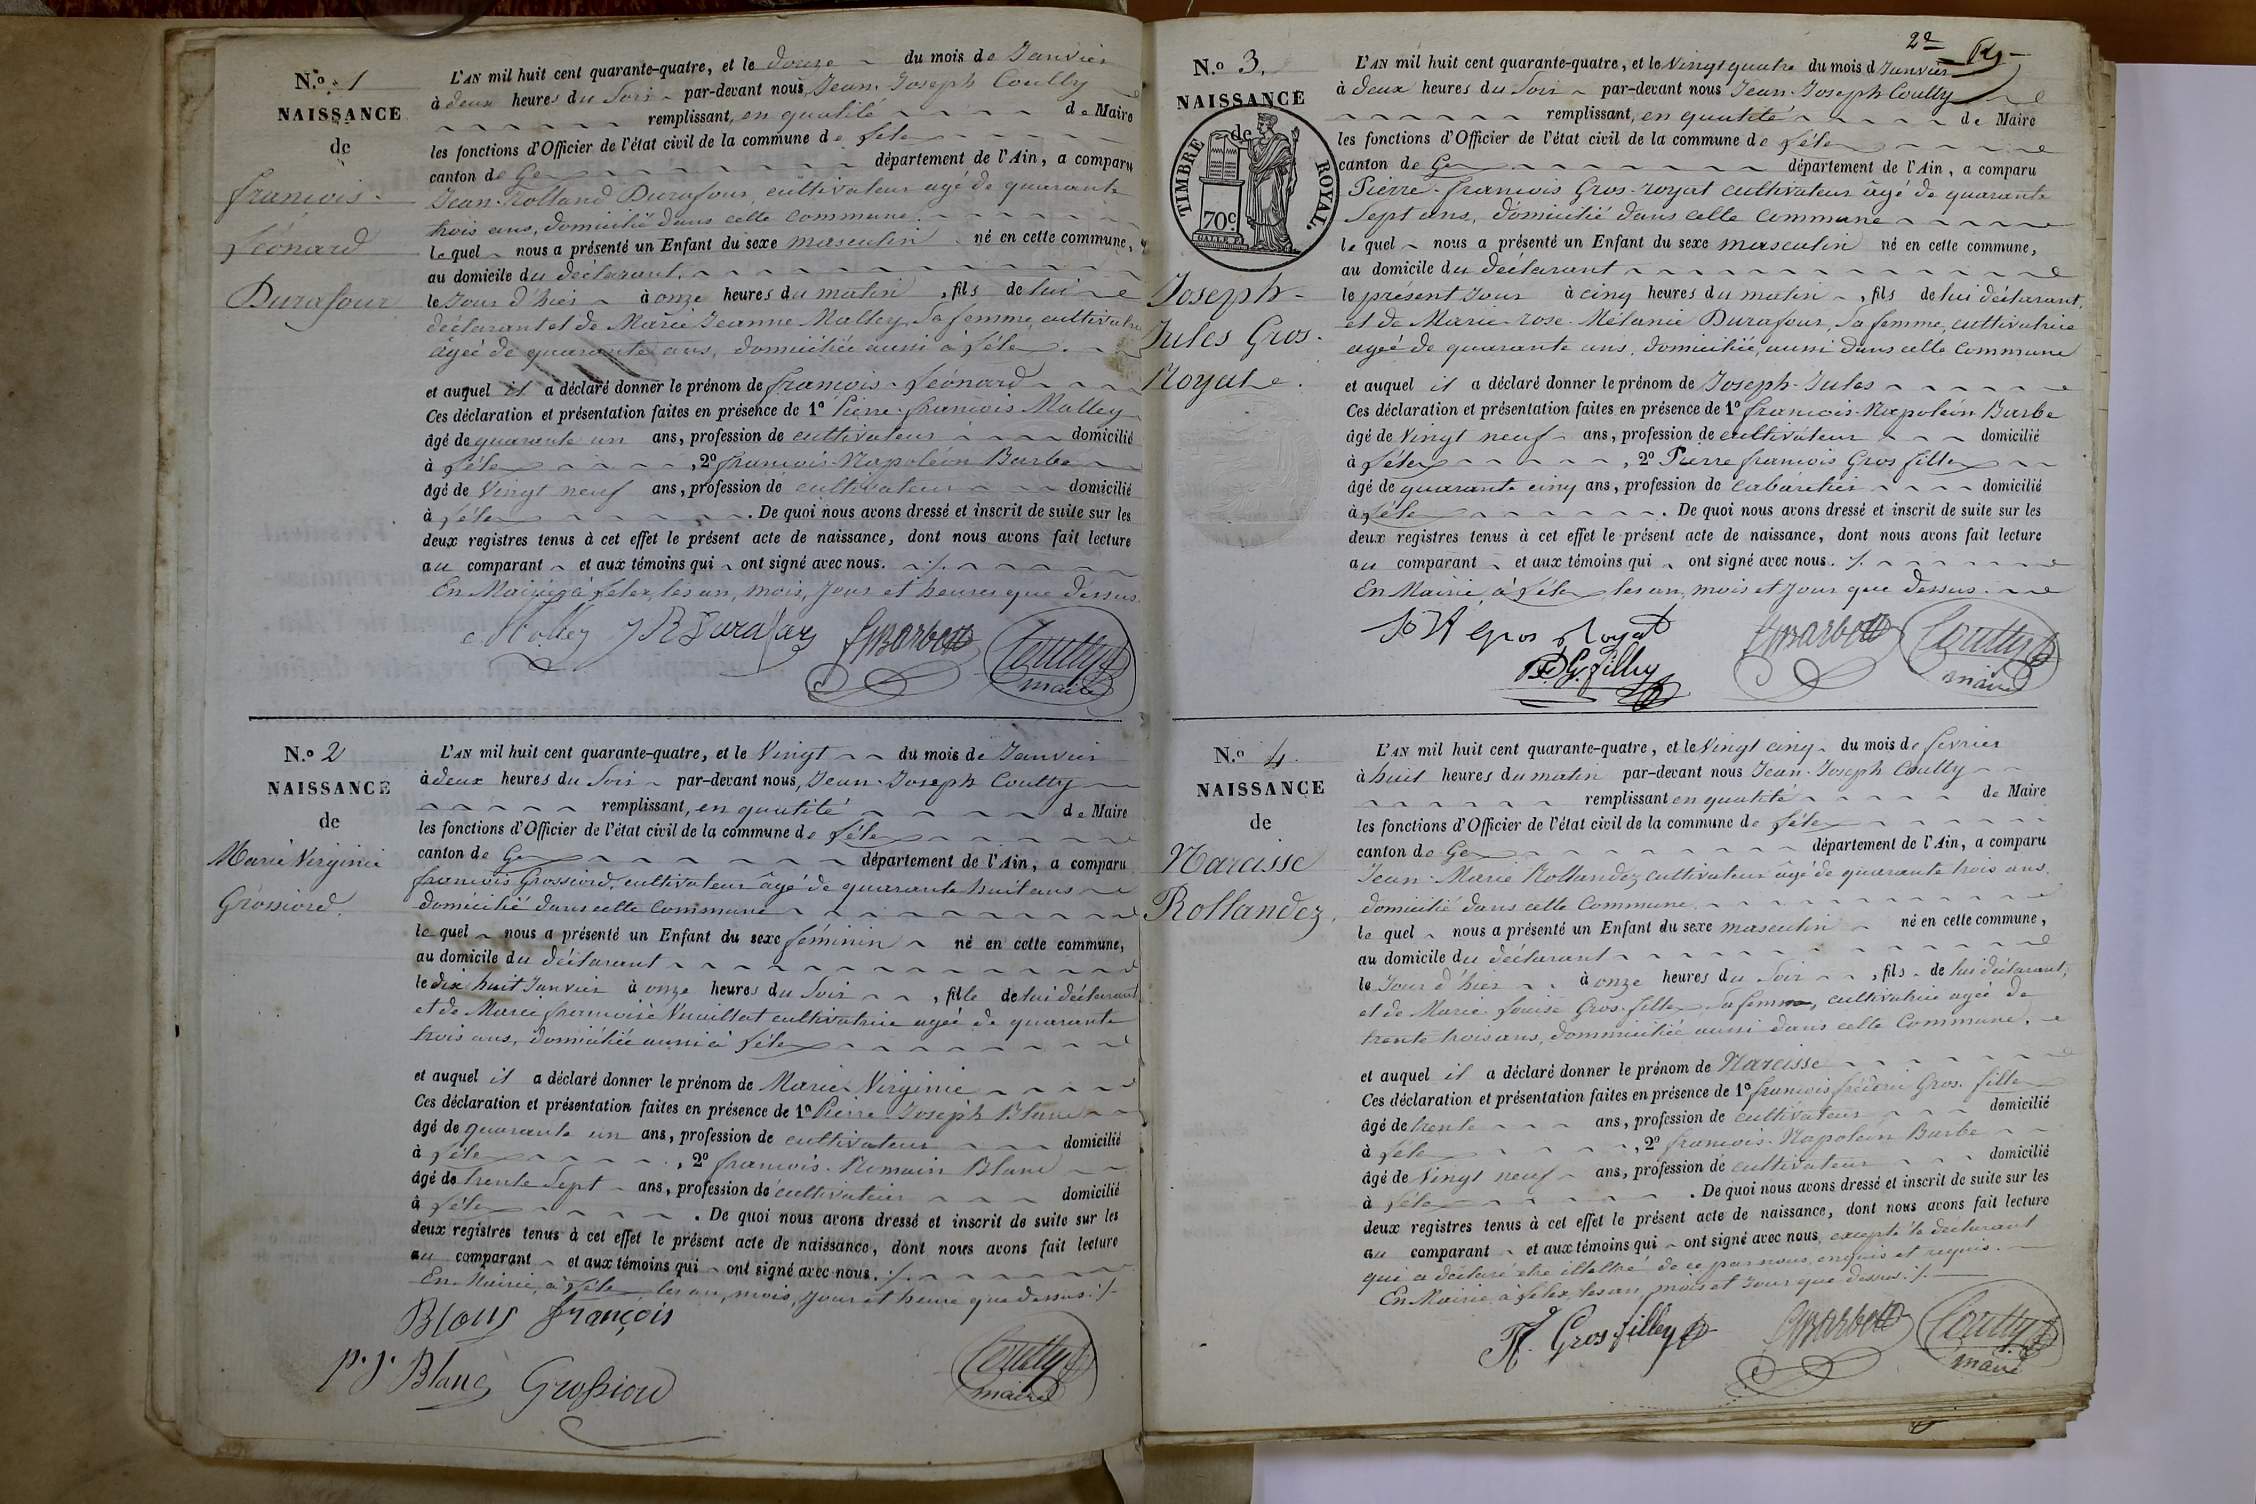 N.º 1
NAISSANCE
de
françois-
Léonard
Durafour
L'AN mil huit cent quarante-quatre, et le douze du mois de Janvier
à deux heures du Soir par-devant nous, Jean-Joseph Coutty
remplissant, en qualité de Maire
les fonctions d'Officier de l'état civil de la commune de Lélex
canton de Gex département de l'Ain, a comparu
Jean-Rolland Durafour, cultivateur agé de quarante
trois ans, domicilié dans cette commune.
le quel nous a présenté un Enfant du sexe masculin né en cette commune,
au domicile du déclarant
le Jour d'hier à onze heures du matin, fils de lui
déclarant et de Marie Jeanne Molley, Sa femme, cultivatrice
âgée de quarante ans, domiciliée aussi à Lélex.
et auquel il a déclaré donner le prénom de françois-Léonard
Ces déclaration et présentation faites en présence de 1º Pierre-françois Molley
âgé de quarante un ans, profession de cultivateur domicilié
à Lélex, 2º françois-Napoléon Barbe
âgé de Vingt neuf ans, profession de cultivateur domicilié
à Lélex. De quoi nous avons dressé et inscrit de suite sur les
deux registres tenus à cet effet le présent acte de naissance, dont nous avons fait lecture
au comparant et aux témoins qui ont signé avec nous. ./.
En Mairie à Lélex, les an, mois, Jour et heures que dessus.
Molley JR Durafour Barbe Coutty
maire
N.º 2
NAISSANCE
de
Marie Virginie
Grossiord.
L'AN mil huit cent quarante-quatre, et le Vingt du mois de Janvier
à deux heures du Soir par-devant nous, Jean-Joseph Coutty
remplissant, en qualité de Maire
les fonctions d'Officier de l'état civil de la commune de Lélex
canton de Gex département de l'Ain, a comparu
françois Grossiord, cultivateur âgé de quarante huit ans
domicilié dans cette commune
le quel nous a présenté un Enfant du sexe féminin né en cette commune,
au domicile du déclarant
le dix huit Janvier à onze heures du Soir, fille de lui déclarant
et de Marie françoise Vuaillat cultivatrice agée de quarante
trois ans, domiciliée aussi à Lélex
et auquel il a déclaré donner le prénom de Marie Virginie
Ces déclaration et présentation faites en présence de 1º Pierre-Joseph Blanc
âgé de quarante un ans, profession de cultivateur domicilié
à Lélex, 2º françois-Romain Blanc
âgé de trente Sept ans, profession de cultivateur domicilié
à Lélex. De quoi nous avons dressé et inscrit de suite sur les
deux registres tenus à cet effet le présent acte de naissance, dont nous avons fait lecture
au comparant et aux témoins qui ont signé avec nous. ./.
En Mairie, à Lélex les an, mois, Jour et heure que dessus ./.
Blanc françois
p.j. Blanc Grossiord Coutty
maire
2e
N.º 3.
NAISSANCE
de
TIMBRE ROYAL.
70c
Joseph-
Jules Gros-
Royat.
L'AN mil huit cent quarante-quatre, et le Vingt quatre du mois d Janvier
à deux heures du Soir par-devant nous Jean-Joseph Coutty
remplissant, en qualité de Maire
les fonctions d'Officier de l'état civil de la commune de Lélex
canton de Gex département de l'Ain, a comparu
Pierre-françois Gros-royat cultivateur âgé de quarante
Sept ans, domicilié dans cette commune
le quel nous a présenté un Enfant du sexe masculin né en cette commune,
au domicile du déclarant
le présent Jour à cinq heures du matin, fils de lui déclarant,
et de Marie-rose-Mélanie Durafour, Sa femme, cultivatrice
agée de quarante ans, domiciliée, aussi dans cette commune
et auquel il a déclaré donner le prénom de Joseph-Jules
Ces déclaration et présentation faites en présence de 1º françois-Napoléon Barbe
âgé de Vingt neuf ans, profession de cultivateur domicilié
à Lélex, 2º Pierre françois Gros fillex
âgé de quarante cinq ans, profession de cabaretier domicilié
à Lélex. De quoi nous avons dressé et inscrit de suite sur les
deux registres tenus à cet effet le présent acte de naissance, dont nous avons fait lecture
au comparant et aux témoins qui ont signé avec nous. ./.
En Mairie, à Lélex les an, mois et Jour que dessus.
Gros Royat Barbe Coutty
maire
G. filley
N.º 4.
NAISSANCE
de
Narcisse
Rollandez.
L'AN mil huit cent quarante-quatre, et le Vingt cinq du mois de février
à huit heures du matin par-devant nous Jean-Joseph Coutty
remplissant en qualité de Maire
les fonctions d'Officier de l'état civil de la commune de Lélex
canton de Gex département de l'Ain, a comparu
Jean-Marie Rollandez cultivateur âgé de quarante trois ans.
domicilié dans cette Commune.
le quel nous a présenté un Enfant du sexe masculin né en cette commune,
au domicile du déclarant
le Jour d'hier à onze heures du Soir, fils de lui déclarant,
et de Marie Louise Gros-fillex, Sa femme, cultivatrice agée de
trente trois ans, dommiciliée aussi dans cette Commune.
et auquel il a déclaré donner le prénom de Narcisse
Ces déclaration et présentation faites en présence de 1º françois fréderic Gros-fillex
âgé de trente ans, profession de cultivateur domicilié
à Lélex, 2º françois-Napoléon Barbe
âgé de Vingt neuf ans, profession de cultivateur domicilié
à Lélex. De quoi nous avons dressé et inscrit de suite sur les
deux registres tenus à cet effet le présent acte de naissance, dont nous avons fait lecture
au comparant et aux témoins qui ont signé avec nous, excepté le declarant
qui a déclaré être illettré de ce par nous enquis et requis.
En Mairie, à Lélex, les an, mois et Jour que dessus. ./.
Gros filley Barbe Coutty
maire